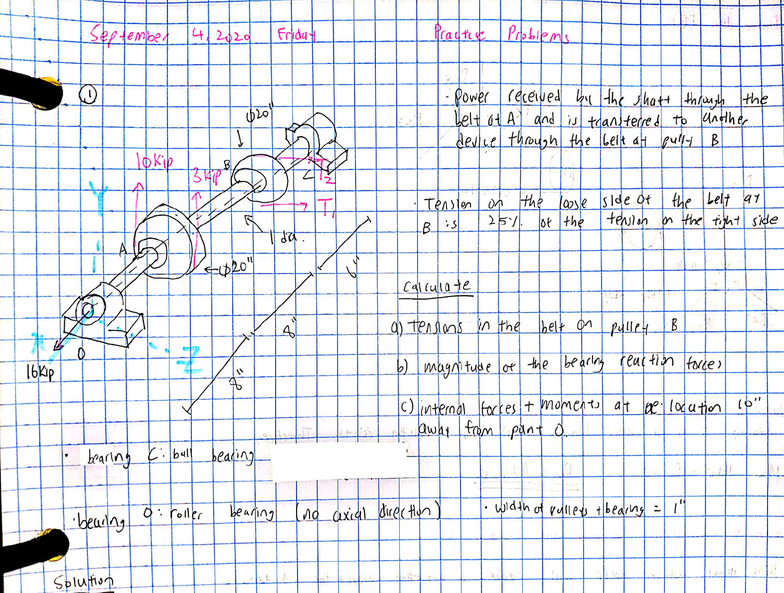 September 4, 2020 Friday
Practice Problems
1
• Power received by the shaft through the
belt at A and is transferred to another
device through the belt at pully B
• Tension on the loose side of the belt at
B is 25% of the tension on the tight side
Calculate
a) Tensions in the belt on pulley B
b) magnitude of the bearing reaction forces
c) internal forces + moments at location 10"
away from point O.
ϕ20"
10Kip
3 Kip
B
T2
C
T1
Y
1 dia.
A
ϕ20"
6"
8"
8"
X
Z
O
16Kip
• bearing C: ball bearing
• bearing O: roller bearing (no axial direction)
• width of pulleys + bearing = 1"
Solution